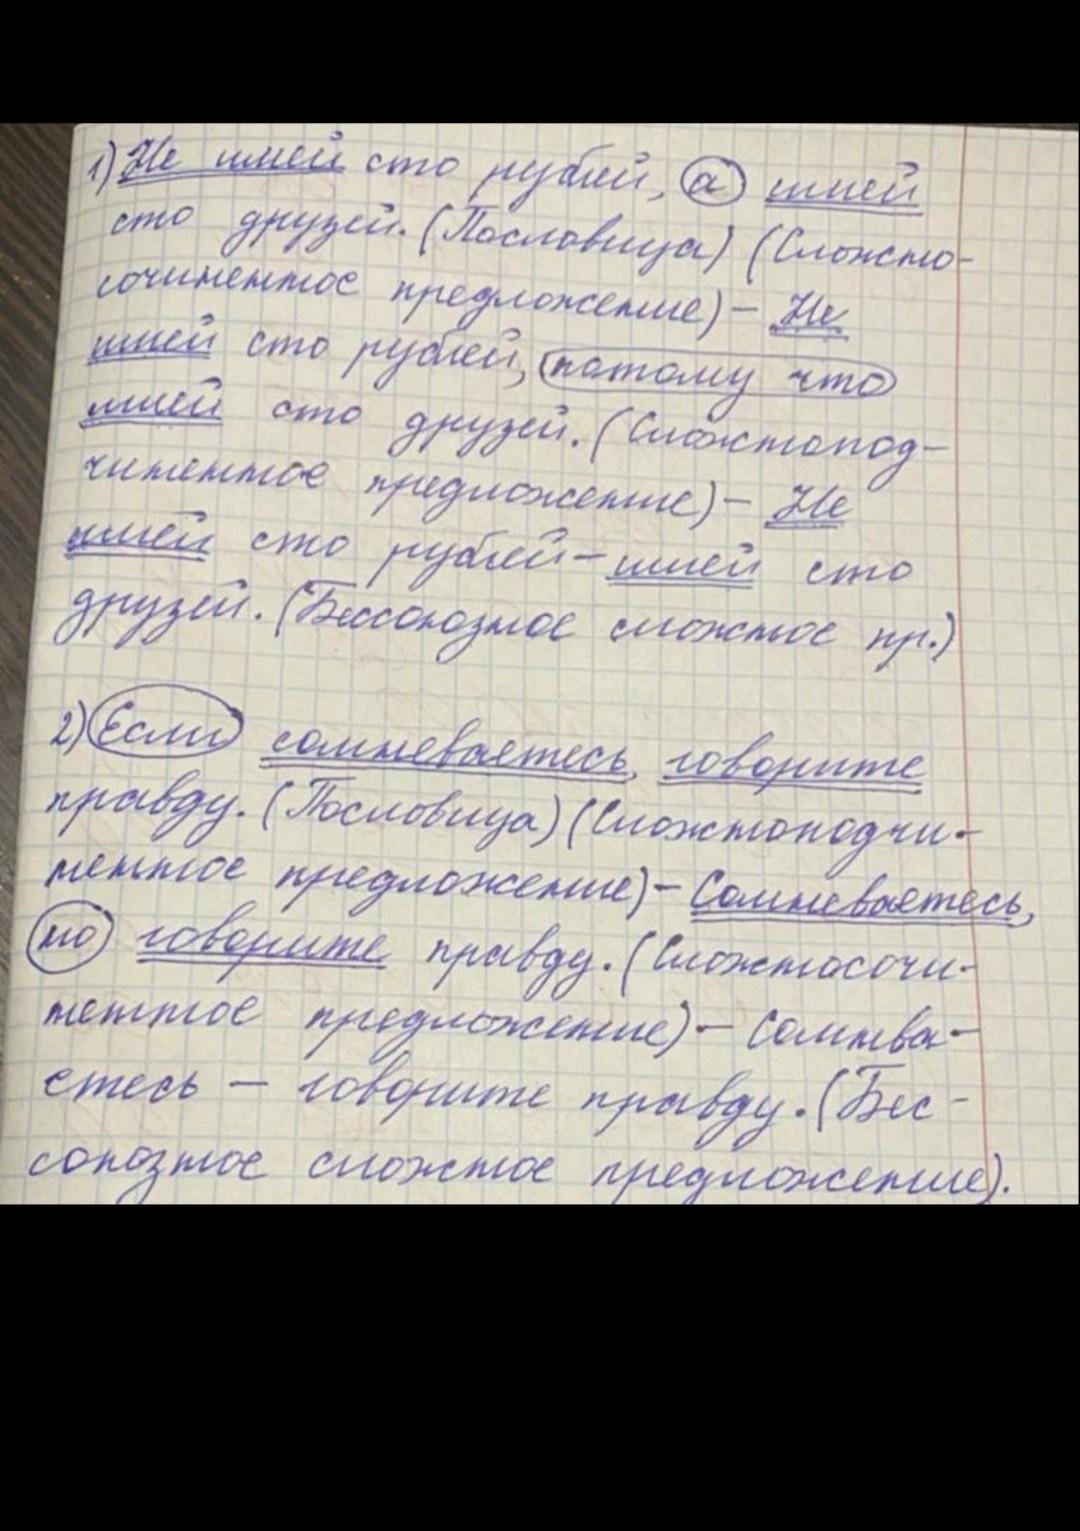 1) Не имей сто рублей, а имей
сто друзей. (Пословица) (Сложно-
сочиненное предложение) – Не
имей сто рублей, потому что
имей сто друзей. (Сложнопод-
чиненное предложение) – Не
имей сто рублей – имей сто
друзей. (Бессоюзное сложное пр.)
2) Если сомневаетесь, говорите
правду. (Пословица) (Сложноподчи-
ненное предложение) – Сомневаетесь,
но говорите правду. (Сложносочи-
ненное предложение) – Сомнева-
етесь – говорите правду. (Бес-
союзное сложное предложение).